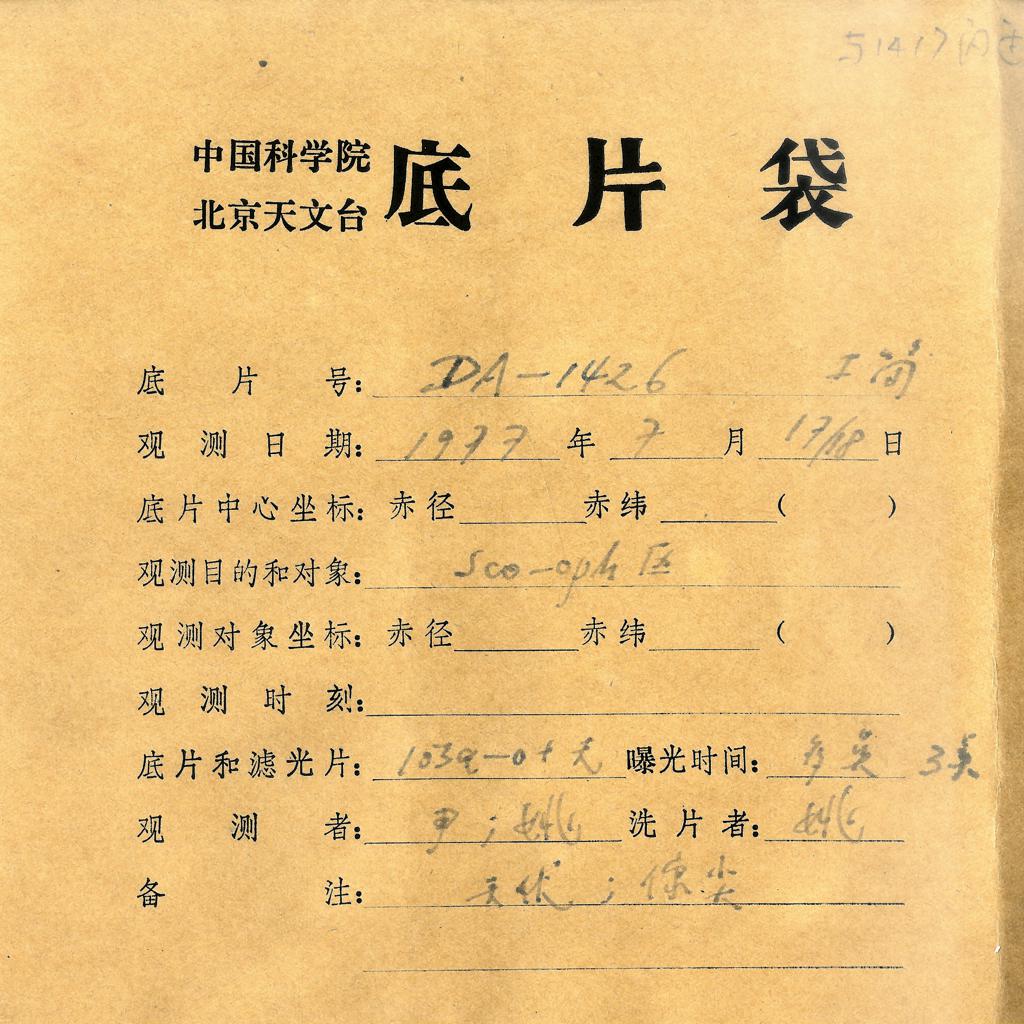 51417
中国科学院
北京天文台
底片袋
底片号：DA-1426
观测日期：1977年7月17/18日
底片中心坐标：赤径 赤纬 （ ）
观测目的和对象：Sco-oph 区
观测对象坐标：赤径 赤纬 （ ）
观测时刻：
底片和滤光片：103a-0+无 曝光时间：
观测者：姚 洗片者：姚
备注：